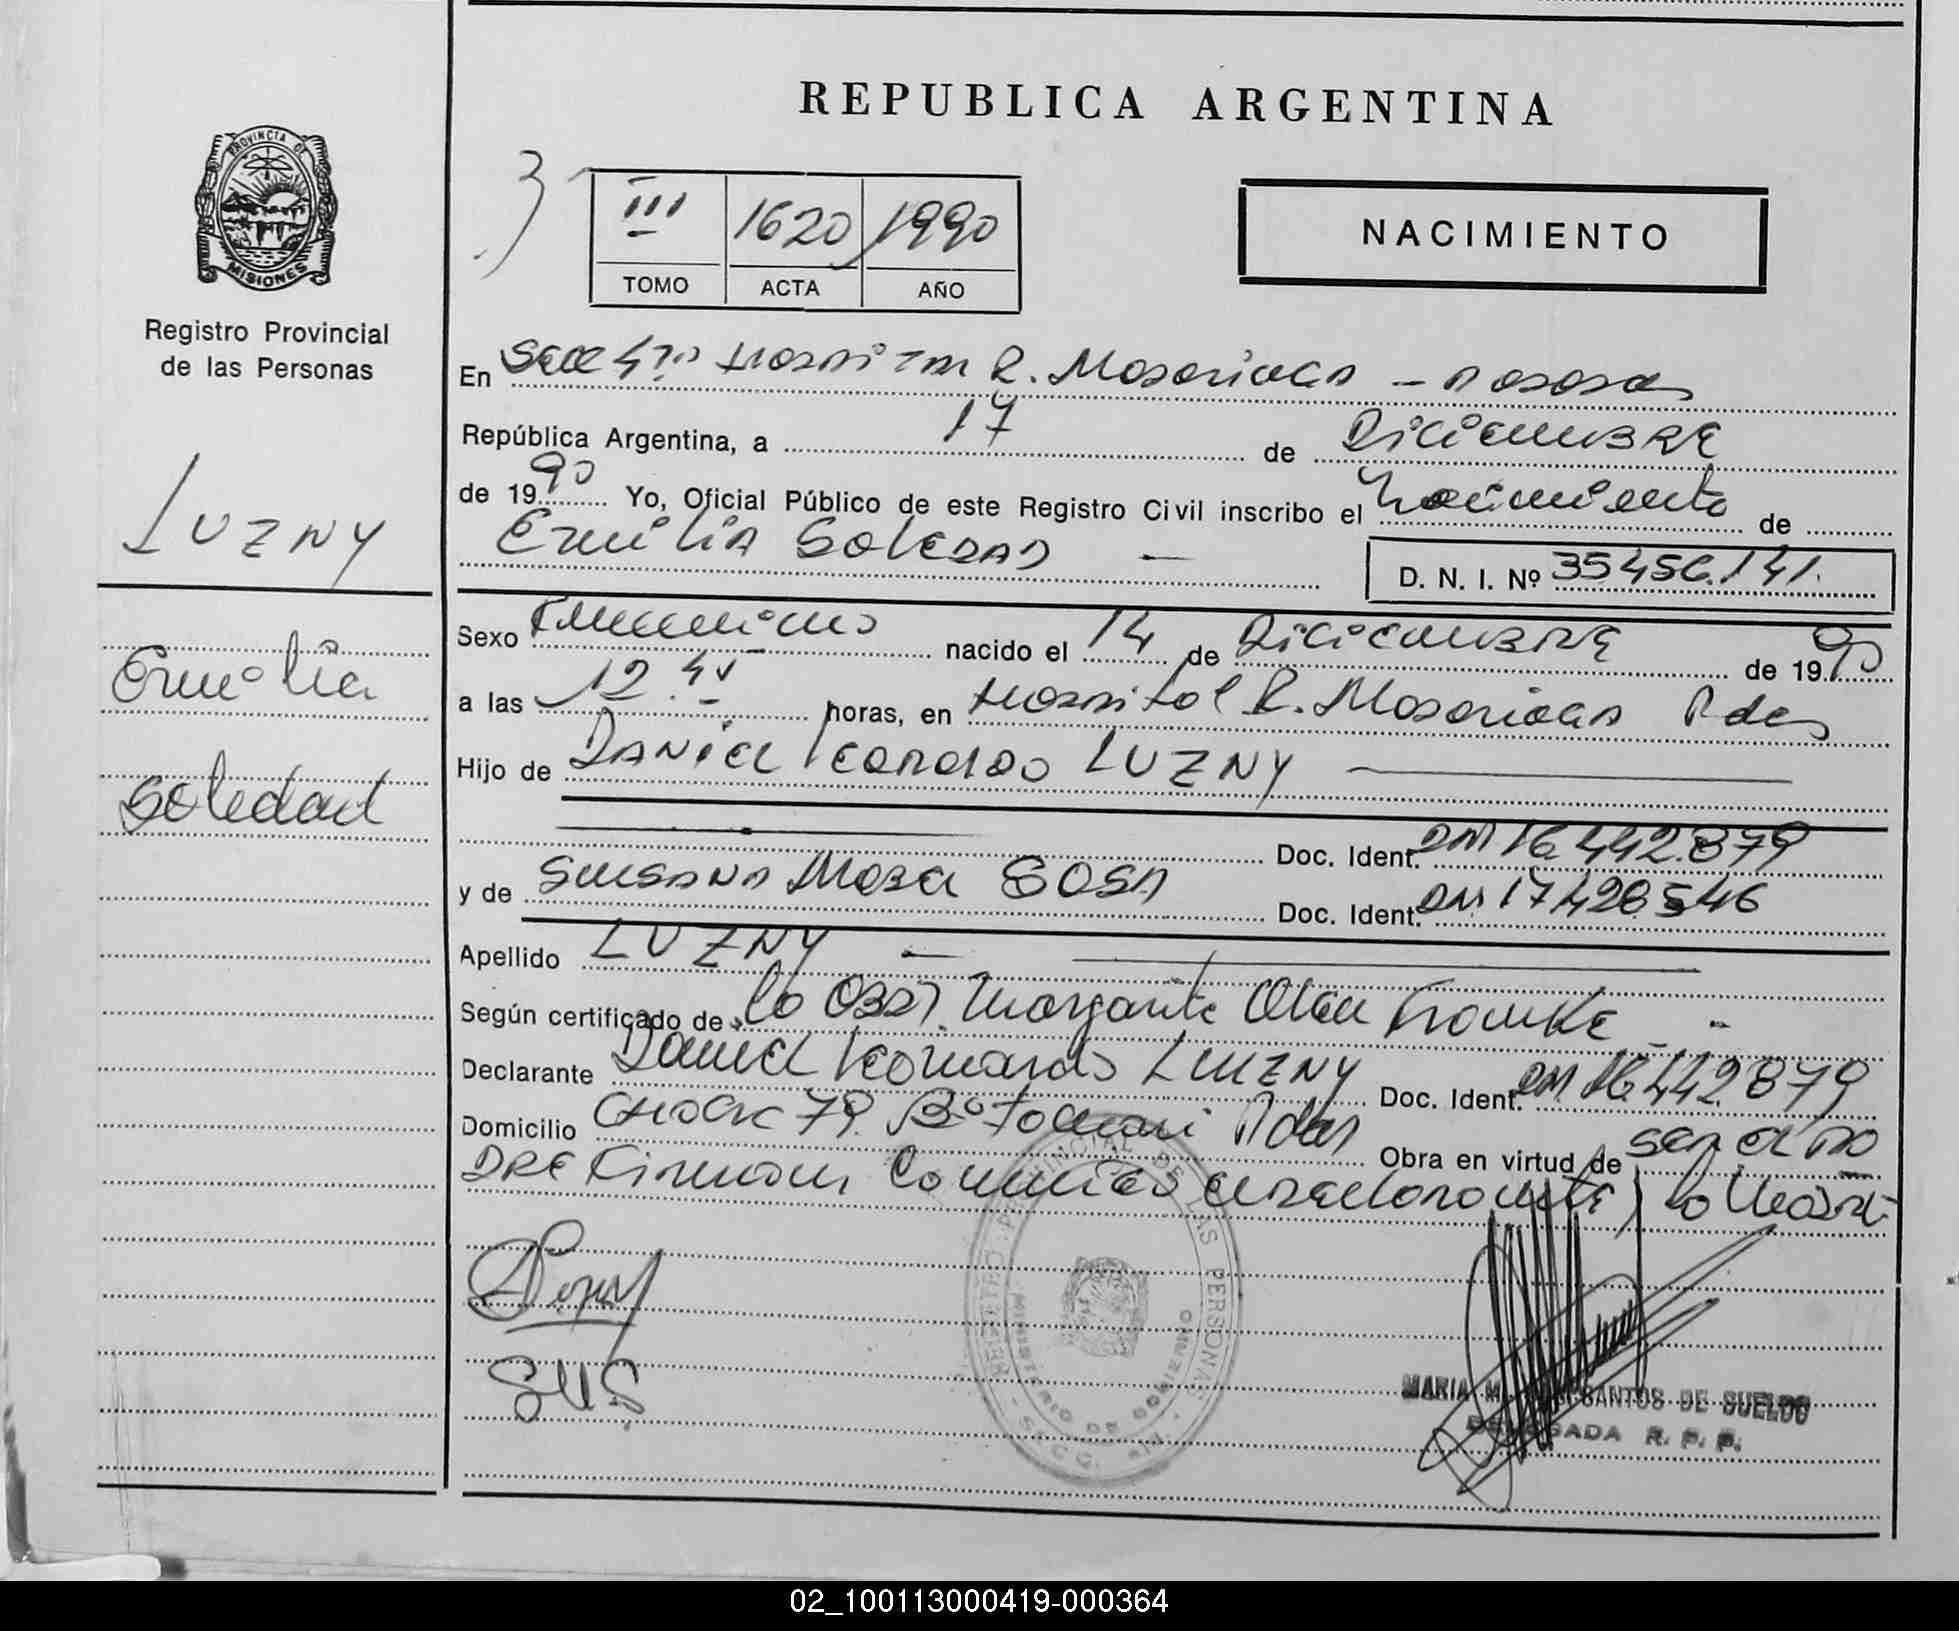 REPUBLICA ARGENTINA
PROVINCIA DE
MISIONES
Registro Provincial
de las Personas
LUZNY
Emilia
Soledad
3
III 1620 1990
TOMO ACTA AÑO
NACIMIENTO
En Secc 4ta Hospital R. Madariaga - Posadas
República Argentina, a 17 de Diciembre
de 1990 Yo, Oficial Público de este Registro Civil inscribo el Nacimiento de
Emilia Soledad — D. N. I. Nº 35.456.141.
Sexo Femenino nacido el 14 de Diciembre de 1990
a las 12.45 horas, en Hospital R. Madariaga Pdas
Hijo de Daniel Leonardo LUZNY
Doc. Ident. DNI 16.442.879
y de Susana Mabel SOSA Doc. Ident. DNI 17.428546
Apellido LUZNY
Según certificado de la Obst. Margarita Olga Franke
Declarante Daniel Leonardo LUZNY Doc. Ident. DNI 16.442.879
Domicilio 79 Bº Pdas Obra en virtud de ser el pa
dre Firman Conmigo el declarante y la Madre
SMS
REGISTRO PROVINCIAL DE LAS PERSONAS
MINISTERIO DE GOBIERNO
MARIA M. SANTOS DE SUELDO
DELEGADA R. P. P.
02_100113000419-000364